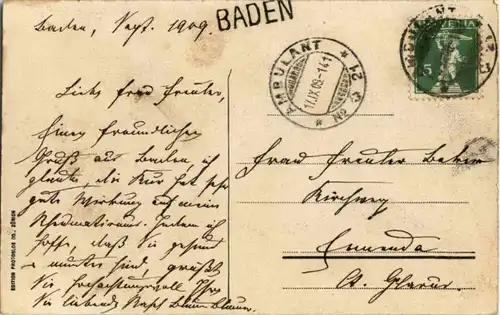 Baden, Sept. 1909.
BADEN
AMBULANT
No 12
11.IX.09-141
HELVETIA
5
Liebe Frau Freuler,
Einen freundlichen
Gruß aus Baden, ich
glaube, die Kur hat sehr
gute Wirkung auf mein
Rheumatismus. Indem ich
hoffe, daß Sie gesund
u. munter sind, grüßt
Sie hochachtungsvoll Ihre
Sie liebende
Frau Freuler
Kirchweg
Ennenda
Ct. Glarus.
EDITION PHOTOGLOB CO., ZÜRICH